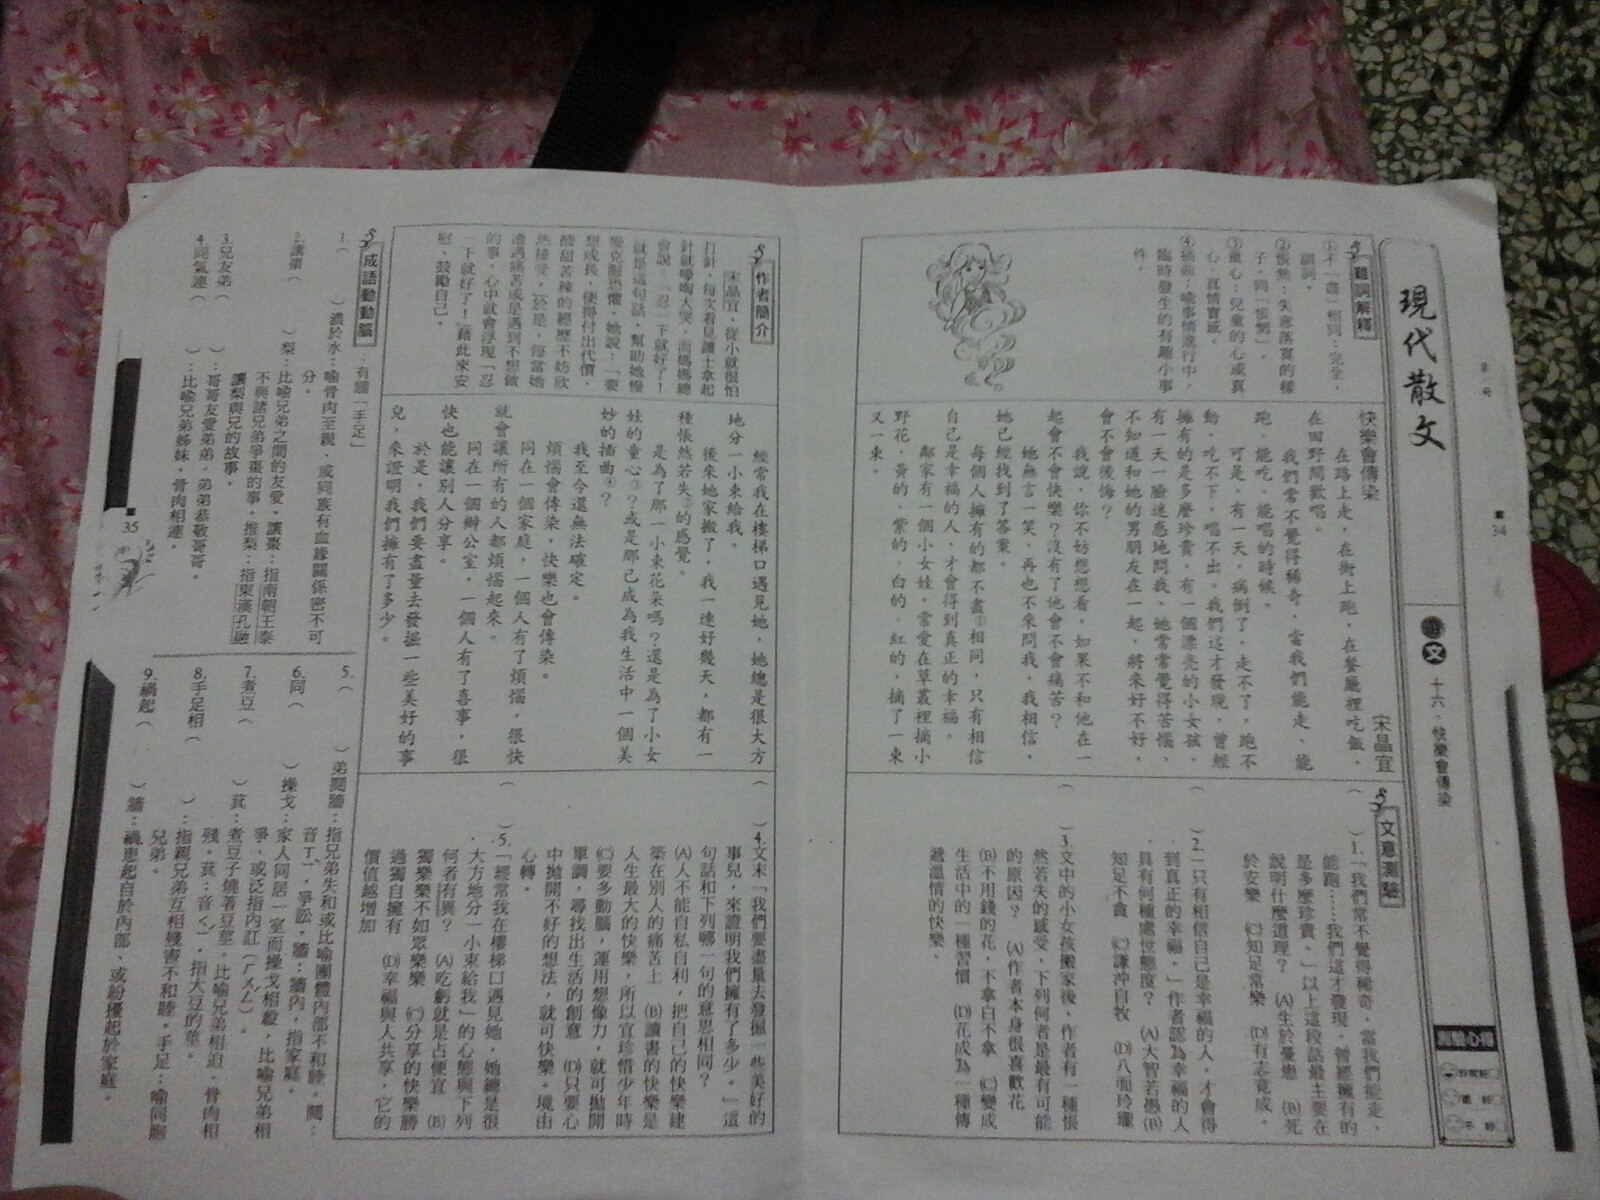 現代散文
第一冊
34
遊文
十六、快樂會傳染
測驗心得
還好
不妙
字詞解釋
①不「盡」相同：完全，
副詞。
②悵然：失意落寞的樣
子，同「悵惘」。
③童心：兒童的心或真
心，真情實感。
④插曲：喻事情進行中，
臨時發生的有趣小事
件。
快樂會傳染
宋晶宜
在路上走，在街上跑，在餐廳裡吃飯，
在田野間歡唱。
我們常不覺得稀奇，當我們能走、能
跑、能吃、能唱的時候。
可是，有一天，病倒了，走不了，跑不
動，吃不下，唱不出。我們這才發現，曾經
擁有的是多麼珍貴。有一個漂亮的小女孩，
有一天一臉迷惑地問我，她常常覺得苦惱，
不知道和她的男朋友在一起，將來好不好，
會不會後悔？
我說，你不妨想想看，如果不和他在一
起會不會快樂？沒有了他會不會痛苦？
她無言一笑，再也不來問我，我相信，
她已經找到了答案。
每個人擁有的都不盡①相同，只有相信
自己是幸福的人，才會得到真正的幸福。
鄰家有一個小女娃，常愛在草叢裡摘小
野花，黃的、紫的、白的、紅的，摘了一束
又一束。
文意測驗
（　）1.「我們常不覺得稀奇，當我們能走、
能跑……我們這才發現，曾經擁有的
是多麼珍貴。」以上這段話最主要在
說明什麼道理？　(A)生於憂患　(B)死
於安樂　(C)知足常樂　(D)有志竟成。
（　）2.「只有相信自己是幸福的人，才會得
到真正的幸福。」作者認為幸福的人
具有何種處世態度？　(A)大智若愚(B)
知足不貪　(C)謙沖自牧　(D)八面玲瓏
（　）3.文中的小女孩搬家後，作者有一種悵
然若失的感受，下列何者是最有可能
的原因？　(A)作者本身很喜歡花
(B)不用錢的花，不拿白不拿　(C)變成
生活中的一種習慣　(D)花成為一種傳
遞溫情的快樂。
作者簡介
宋晶宜，從小就很怕
打針，每次看見護士拿起
針就嚎啕大哭，而媽媽總
會說：「忍一下就好了！」
就是這句話，幫助她慢
慢克服恐懼。她說：「要
想成長，便得付出代價，
酸甜苦辣的經歷不妨欣
然接受。」於是，每當她
遭遇痛苦或是遇到不想做
的事，心中就會浮現「忍
一下就好了！」藉此來安
慰、鼓勵自己。
經常我在樓梯口遇見她，她總是很大方
地分一小束給我。
後來她家搬了，我一連好幾天，都有一
種悵然若失②的感覺。
是為了那一小束花朵嗎？還是為了小女
娃的童心③？或是那已成為我生活中一個美
妙的插曲④？
我至今還無法確定。
煩惱會傳染，快樂也會傳染。
同在一個家庭，一個人有了煩惱，很快
就會讓所有的人都煩惱起來。
同在一個辦公室，一個人有了喜事，很
快也能讓別人分享。
於是，我們要盡量去發掘一些美好的事
兒，來證明我們擁有了多少。
（　）4.文末「我們要盡量去發掘一些美好的
事兒，來證明我們擁有了多少。」這
句話和下列哪一句的意思相同？
(A)人不能自私自利，把自己的快樂建
築在別人的痛苦上　(B)讀書的快樂是
人生最大的快樂，所以宜珍惜少年時
(C)要多動腦，運用想像力，就可拋開
單調，尋找出生活的創意　(D)只要心
中拋開不好的想法，就可快樂，境由
心轉。
（　）5.「經常我在樓梯口遇見她，她總是很
大方地分一小束給我」的心態與下列
何者有異？　(A)吃虧就是占便宜　(B)
獨樂樂不如眾樂樂　(C)分享的快樂勝
過獨自擁有　(D)幸福與人共享，它的
價值越增加
成語動動腦
：有關「手足」
1.（　）濃於水：喻骨肉至親、或同族有血緣關係密不可
分。
2.讓棗（　）梨：比喻兄弟之間的友愛。讓棗：指南朝王泰
不與諸兄弟爭棗的事，推梨：指東漢孔融
讓梨與兄的故事。
3.兄友弟（　）：哥哥友愛弟弟，弟弟恭敬哥哥。
4.同氣連（　）：比喻兄弟姊妹，骨肉相連。
5.（　）弟鬩牆：指兄弟失和或比喻團體內部不和睦。鬩：
音ㄒㄧˋ，爭訟。牆：牆內，指家庭。
6.同（　）操戈：家人同居一室而操戈相殺，比喻兄弟相
爭、或泛指內訌（ㄏㄨㄥˊ）。
7.煮豆（　）萁：煮豆子燒著豆莖。比喻兄弟相迫，骨肉相
殘。萁：音ㄑㄧˊ，指大豆的莖。
8.手足相（　）：指親兄弟互相殘害不和睦。手足：喻同胞
兄弟。
9.禍起（　）牆：禍患起自於內部、或紛擾起於家庭。
35